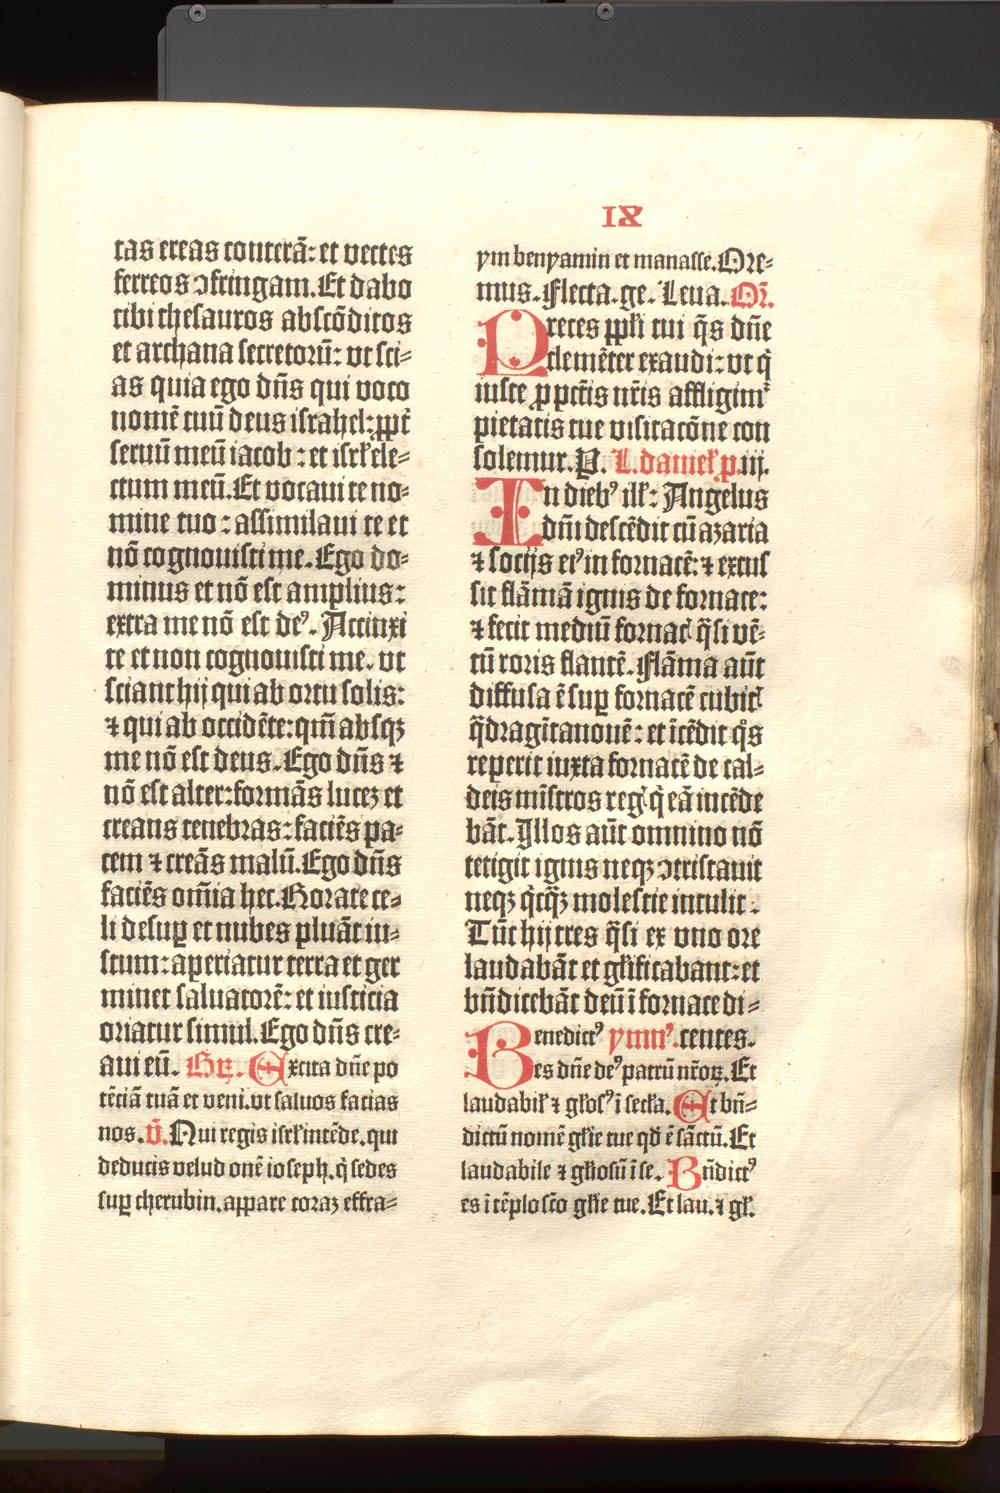 IX
tas ereas conterā: et vectes
ferreos ↄfringam. Et dabo
tibi thesauros abscōditos
et archana secretorū: vt sci-
as quia ego dn̄s qui voco
nomē tuū deus israhel: ꝓpt̄
seruū meū iacob: et isrl̄ ele-
ctum meū. Et vocaui te no-
mine tuo: assimilaui te et
nō cognouisti me. Ego do-
minus et nō est amplius:
extra me nō est deꝰ. Accinxi
te et non cognouisti me. vt
sciant hij qui ab ortu solis:
⁊ qui ab occidēte: qm̄ absqꝫ
me nō est deus. Ego dn̄s ⁊
nō est alter: formās lucez et
creans tenebras: faciēs pa-
cem ⁊ creās malū. Ego dn̄s
faciēs om̄ia hec. Rorate ce-
li desuꝑ et nubes pluāt iu-
stum: aperiatur terra et ger
minet saluatorē: et iusticia
oriatur simul. Ego dn̄s cre-
aui eū. Gꝝ. Excita dn̄e po
tēciā tuā et veni. vt saluos facias
nos. v̄. Nui regis isrl̄ intēde. qui
deducis velud onē ioseph. q̇ sedes
suꝑ cherubin. appare coraz effra-
ym benyamin et manasse. Ore-
mus. Flecta. ge. Leua. Or̄.
Preces ppl̄i tui q̄s dn̄e
clemēter exaudi: vt q̇
iuste ꝓ pctīs nr̄is affligimᷣ
pietatis tue visitacōne con
solemur. P. L. danieł. ꝓ. iij.
In diebꝰ ill̄: Angelus
dn̄i descēdit cū azaria
⁊ socijs eiꝰ in fornacē: ⁊ excus
sit flāmā ignis de fornace:
⁊ fecit mediū fornac̄ q̄si vē-
tū roris flantē. Flāma aūt
diffusa ē suꝑ fornacē cubit̄
q̄dragīta nouē: et īcēdit qͦs
reperit iuxta fornacē de cal-
deis mīstros reḡ q̇ eā incēde
bāt. Illos aūt omnino nō
tetigit ignis neqꝫ ↄtristauit
neqꝫ q̇cq̄ꝫ molestie intulit:
Tūc hij tres q̄si ex vno ore
laudabāt et gl̄ificabant: et
bn̄dicebāt deū ī fornace di-
Benedictꝰ ymnꝰ. centes.
es dn̄e deꝰ patrū nr̄oꝝ. Et
laudabil̄ ⁊ gl̄osꝰ ī secl̄a. Et bn̄-
dictū nomē gl̄ie tue qd̄ ē sāctū. Et
laudabile ⁊ gl̄iosū ī se. Bn̄dictꝰ
es ī tēplo scō gl̄ie tue. Et lau. ⁊ gl̄.